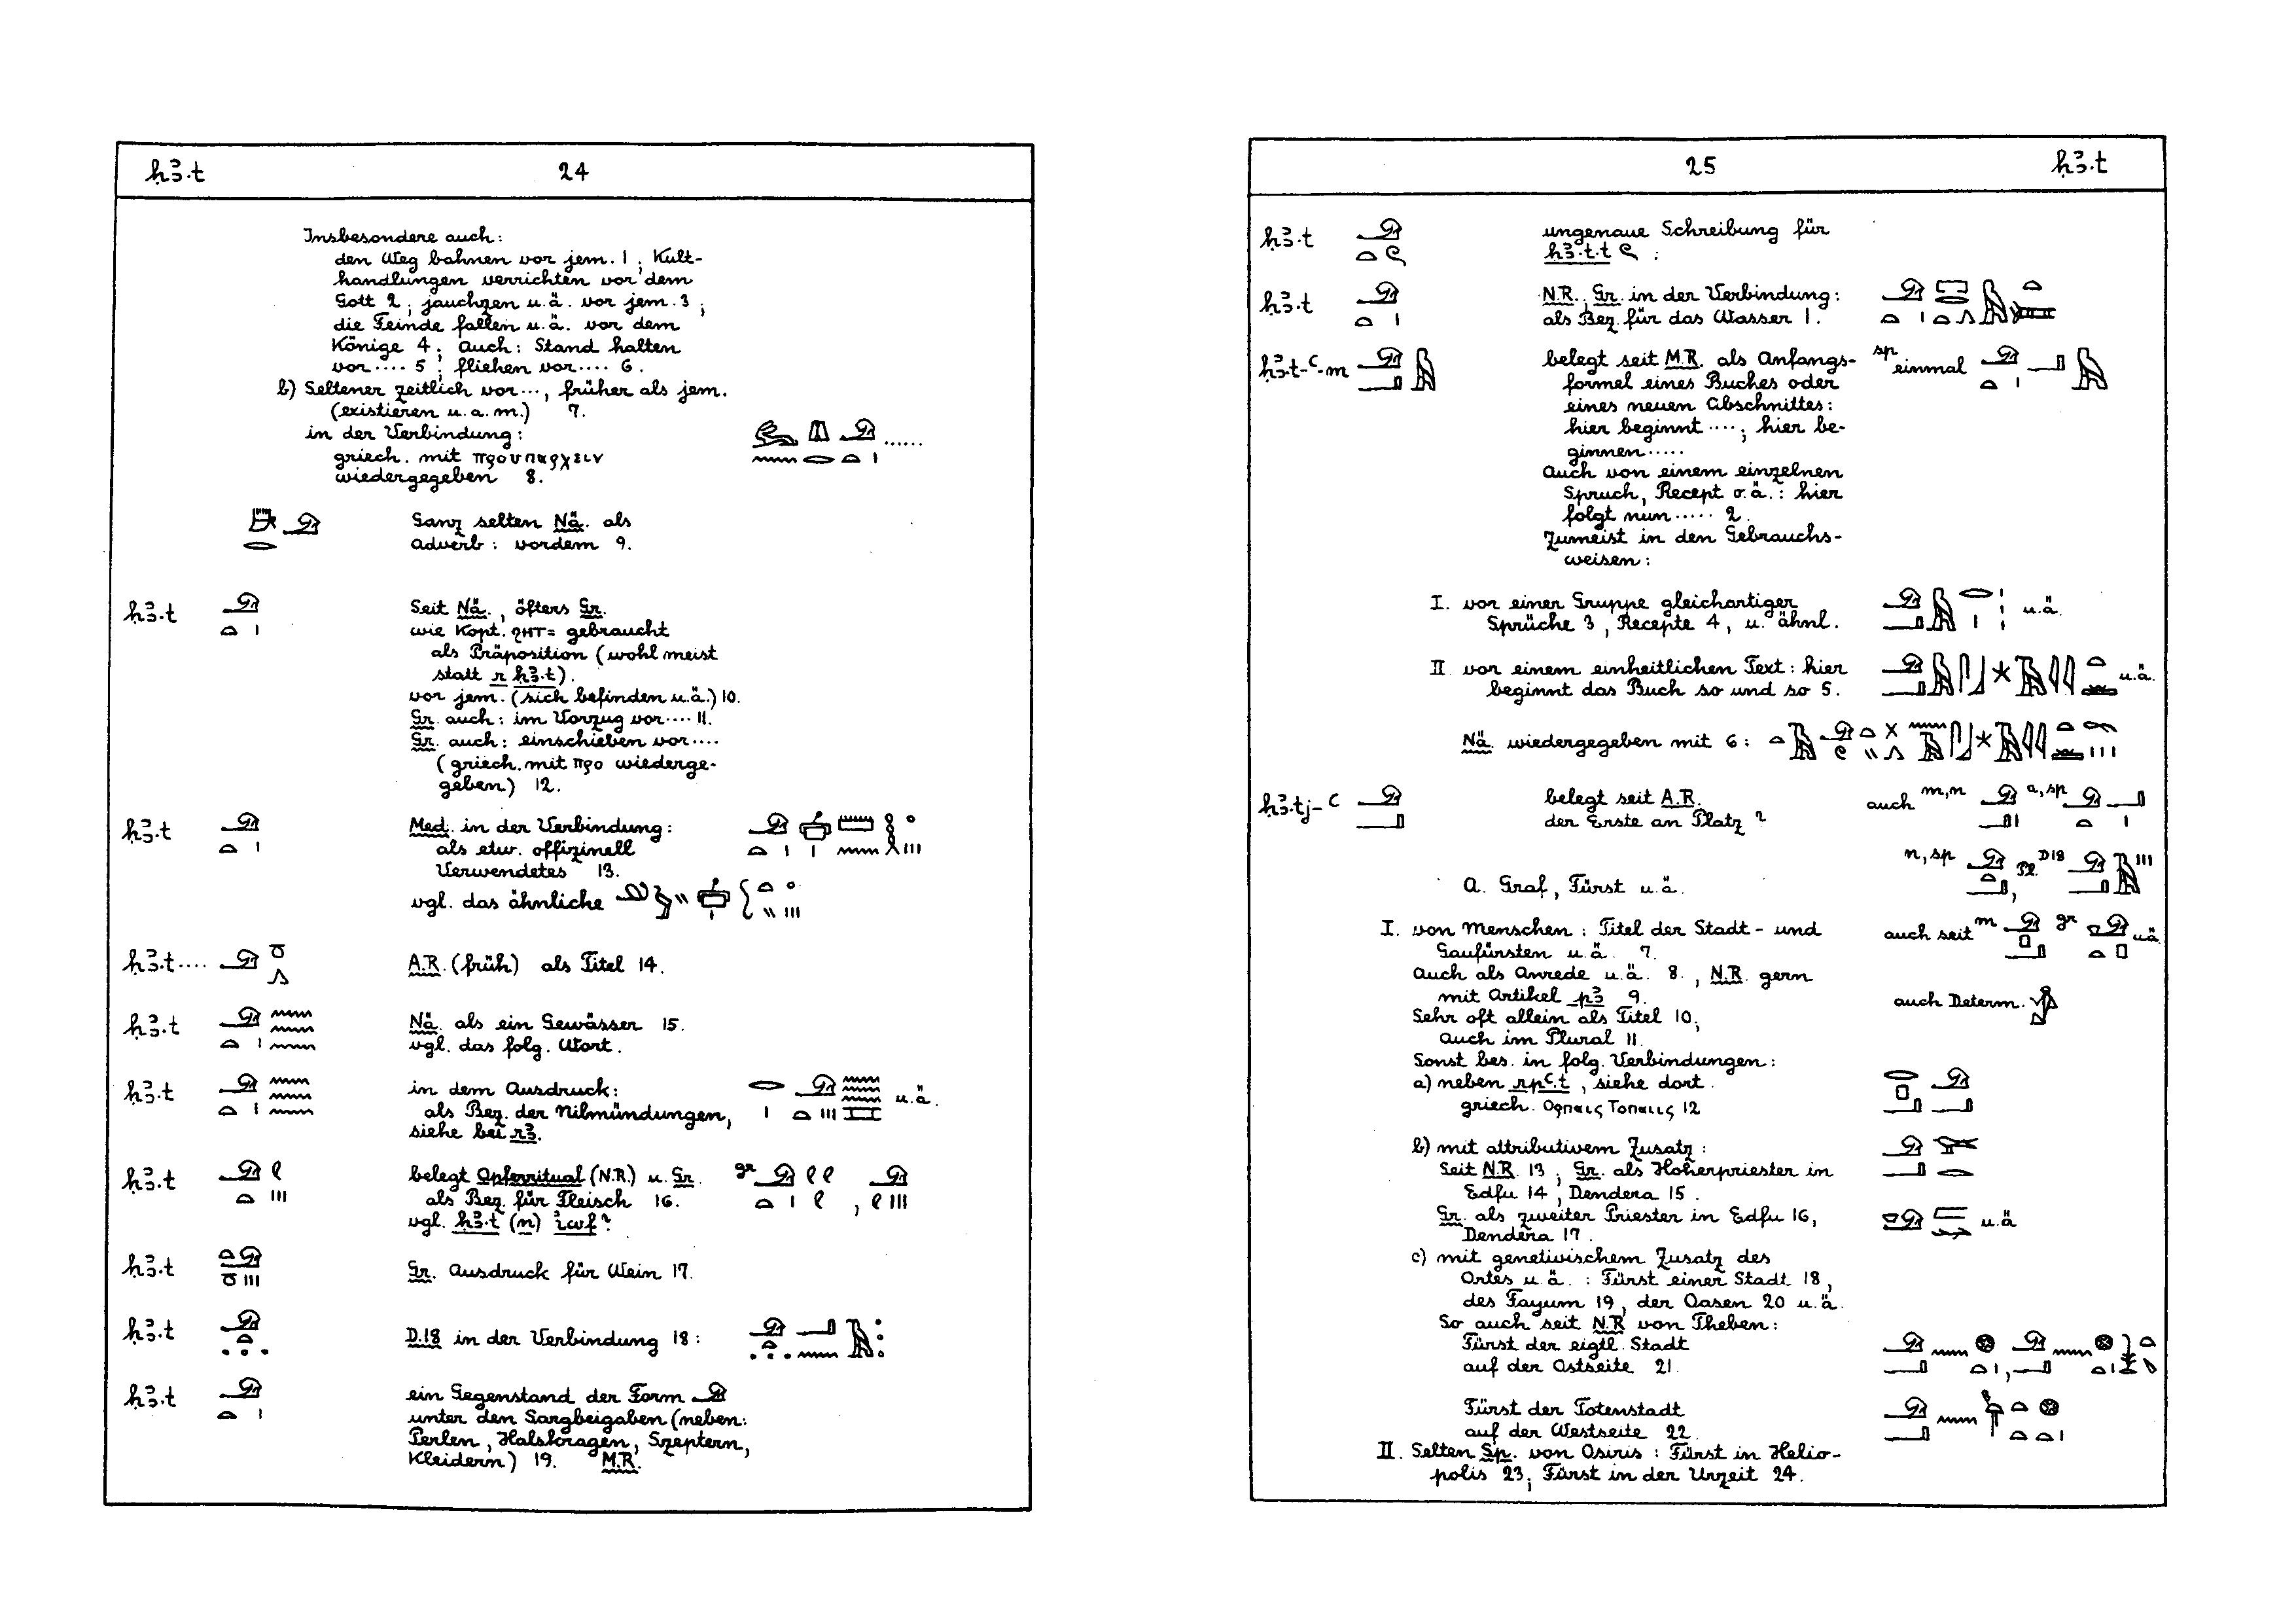 ḥꜣ.t 24
Insbesondere auch:
den Weg bahnen vor jem. 1; Kult-
handlungen verrichten vor dem
Gott 2; jauchzen u.ä. vor jem. 3;
die Feinde fallen u.ä. vor dem
Könige 4; Auch: Stand halten
vor.... 5; fliehen vor.... 6.
b) Seltener zeitlich vor..., früher als jem.
(existieren u.a.m.) 7.
in der Verbindung: ......
griech. mit προυπαρχειν
wiedergegeben 8.
Ganz selten Nä. als
Adverb: vordem 9.
ḥꜣ.t Seit Nä., öfters Gr.
wie Kopt. ϩΗΤ= gebraucht
als Präposition (wohl meist
statt r ḥꜣ.t).
vor jem. (sich befinden u.ä.) 10.
Gr. auch: im Vorzug vor.... 11.
Gr. auch: einschieben vor....
(griech. mit προ wiederge-
geben) 12.
ḥꜣ.t Med. in der Verbindung:
als etw. offizinell
Verwendetes 13.
vgl. das ähnliche
ḥꜣ.t.... A.R. (früh) als Titel 14.
ḥꜣ.t Nä. als ein Gewässer 15.
vgl. das folg. Wort.
ḥꜣ.t in dem Ausdruck: u.ä.
als Bez. der Nilmündungen,
siehe bei rꜣ.
ḥꜣ.t belegt Opferritual (N.R.) u. Gr. gr
als Bez. für Fleisch 16.
vgl. ḥꜣ.t (n) iwf?
ḥꜣ.t Gr. Ausdruck für Wein 17.
ḥꜣ.t D.18 in der Verbindung 18:
ḥꜣ.t ein Gegenstand der Form
unter den Sargbeigaben (neben:
Perlen, Halskragen, Szeptern,
Kleidern) 19. M.R.
25 ḥꜣ.t
ḥꜣ.t ungenaue Schreibung für
ḥꜣ.t.t :
ḥꜣ.t N.R., Gr. in der Verbindung:
als Bez. für das Wasser 1.
ḥꜣ.t-ꜥ-m belegt seit M.R. als Anfangs- sp einmal
formel eines Buches oder
eines neuen Abschnittes:
hier beginnt....; hier be-
ginnen.....
Auch von einem einzelnen
Spruch, Recept o.ä.: hier
folgt nun..... 2.
Zumeist in den Gebrauchs-
weisen:
I. vor einer Gruppe gleichartiger u.ä.
Sprüche 3, Recepte 4, u. ähnl.
II vor einem einheitlichen Text: hier u.ä.
beginnt das Buch so und so 5.
Nä. wiedergegeben mit 6:
ḥꜣ.tj-ꜥ belegt seit A.R. auch m,n a,sp
der Erste an Platz?
n,sp Pl. D18
A. Graf, Fürst u.ä.
I. von Menschen: Titel der Stadt- und auch seit m gr u.ä.
Gaufürsten u.ä. 7.
Auch als Anrede u.ä. 8., N.R. gern
mit Artikel pꜣ 9. auch Determ.
Sehr oft allein als Titel 10;
Auch im Plural 11.
Sonst bes. in folg. Verbindungen:
a) neben rpꜥ.t, siehe dort.
griech. Ορπαις Τοπαιις 12
b) mit attributivem Zusatz:
Seit N.R. 13; Gr. als Hoherpriester in
Edfu 14, Dendera 15.
Gr. als zweiter Priester in Edfu 16, u.ä
Dendera 17.
c) mit genetivischem Zusatz des
Ortes u.ä.: Fürst einer Stadt 18,
des Fayum 19, der Oasen 20 u.ä.
So auch seit N.R. von Theben:
Fürst der eigtl. Stadt
auf der Ostseite 21.
Fürst der Totenstadt
auf der Westseite 22.
II. Selten Sp. von Osiris: Fürst in Helio-
polis 23; Fürst in der Urzeit 24.